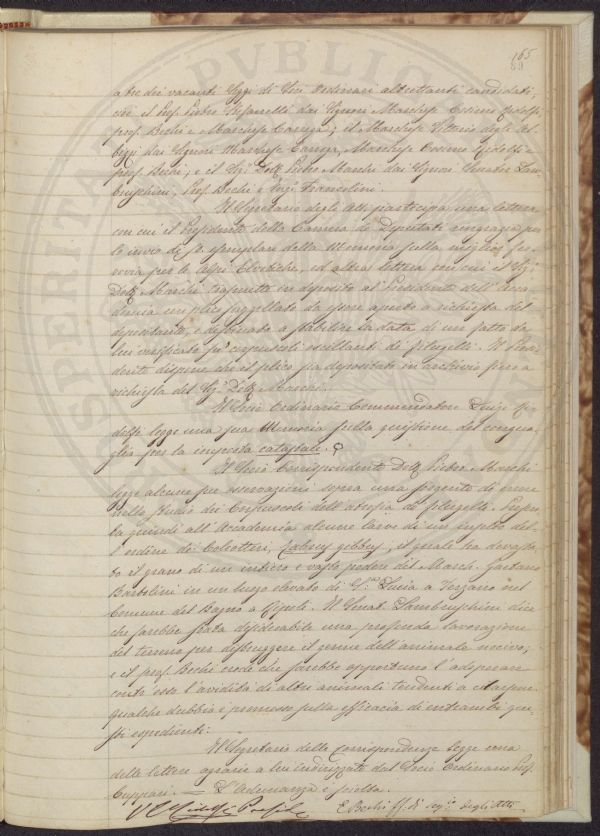 165
89
a tre dei vacanti seggi di Soci Ordinari altrettanti candidati,
cioè il Prof. Pietro Stefanelli dai Signori Marchese Cosimo Ridolfi,
prof. Bechi e Marchese Carrega; il Marchese Vittorio degli Al-
bizzi dai Signori Marchese Carrega, Marchese Cosimo Ridolfi e
prof. Bechi; e il Sig. Dott. Pietro Marchi dai Signori Senatore Lam-
bruschini, Prof. Bechi e Luigi Franceolini.
Il Segretario degli Atti partecipa una lettera
con cui il Presidente della Camera de' Deputati ringrazia per
lo invio di esemplari della Memoria sulla miglior fer-
rovia per le Alpi Elvetiche, ed altra lettera con cui il Sig.
Dott. Marchi trasmette in deposito al Presidente dell'Acca-
demia un plico suggellato da essere aperto a richiesta del
depositante, e destinato a stabilire la data di un fatto da
lui verificato su' corpuscoli oscillanti de' filugelli. Il Presi-
dente dispone che il plico sia depositato in archivio fino a
richiesta del Sig. Dott. Marchi.
Il Socio Ordinario Commendatore Luigi Ri-
dolfi legge una sua Memoria sulla quistione del conguа-
glio per la imposta catastale.
Il Socio Corrispondente Dott. Pietro Marchi
legge alcune sue osservazioni sopra una sorgente di errore
nello studio dei Corpuscoli dell'atrofia de' filugelli. Presen-
ta quindi all'Accademia alcune larve di un insetto del-
l'ordine dei Coleotteri, Zabrus gibbus, il quale ha devasta-
to il grano di un intiero e vasto podere del March. Gaetano
Bartolini in un luogo elevato di S.ta Lucia a Terzano nel
Comune del Bagno a Ripoli. Il Senat. Lambruschini dice
che sarebbe stata desiderabile una profonda lavorazione
del terreno per distruggere il germe dell'animale nocivo;
e il prof. Bechi crede che sarebbe opportuno l'adoperare
contro esso l'avidità di altri animali tendenti a
qualche dubbio è promosso sulla efficacia di entrambi que-
sti espedienti.
Il Segretario delle corrispondenze legge una
delle lettere agrarie a lui indirizzate dal Socio Ordinario Prof.
Cuppari. = L'adunanza è sciolta.
E. Bechi ff. di seg.rio degli Atti